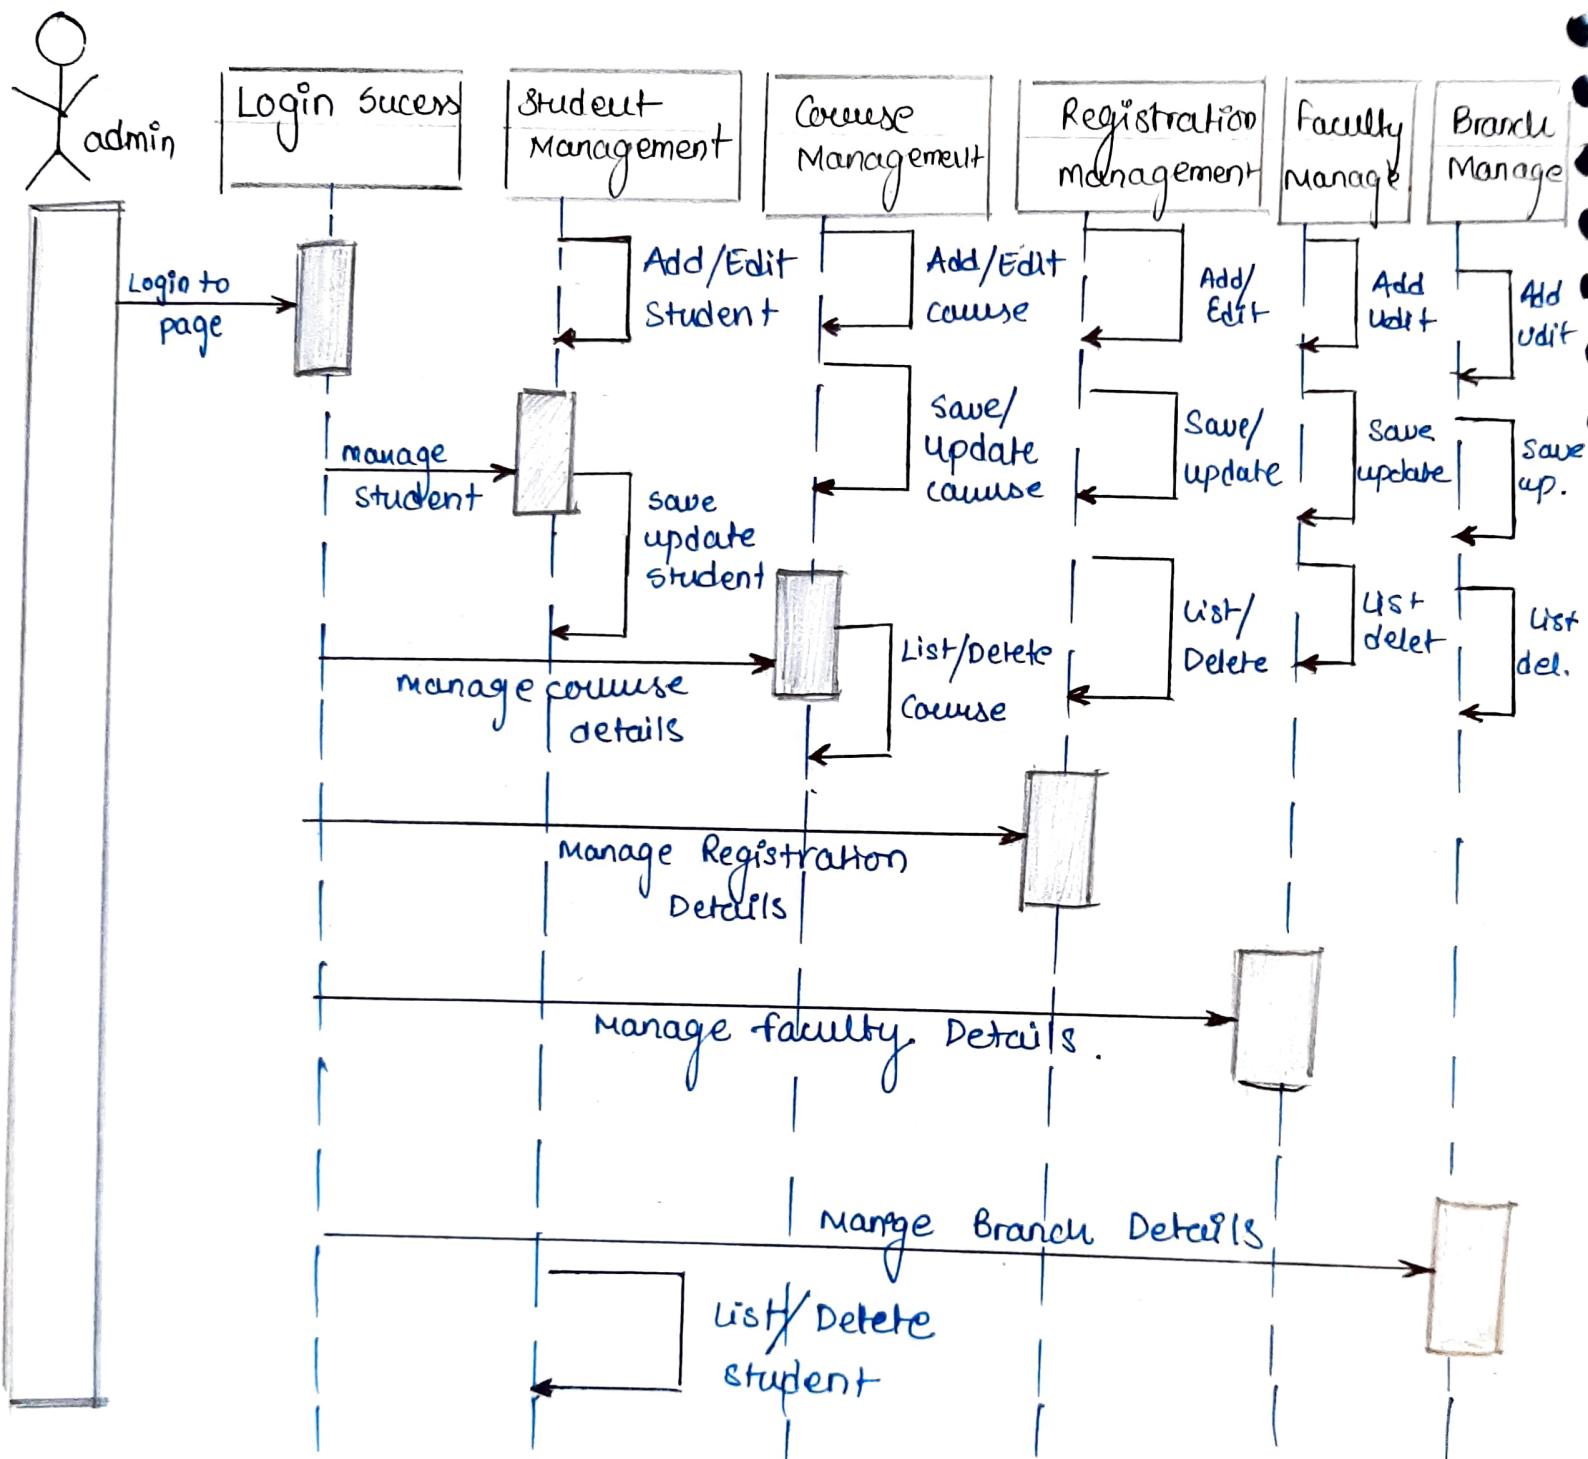 admin
Login Sucess
Student
Management
Course
Management
Registration
management
Faculty
Manage
Branch
Manage
Login to
page
Add/Edit
Student
Add/Edit
course
Add/
Edit
Add
Udit
Add
Udit
manage
student
save
update
student
Save/
update
course
Save/
update
Save
update
Save
up.
manage course
details
List/Delete
Course
List/
Delete
List
delet
List
del.
Manage Registration
Details
Manage faculty Details.
Mange Branch Details
List/Delete
student